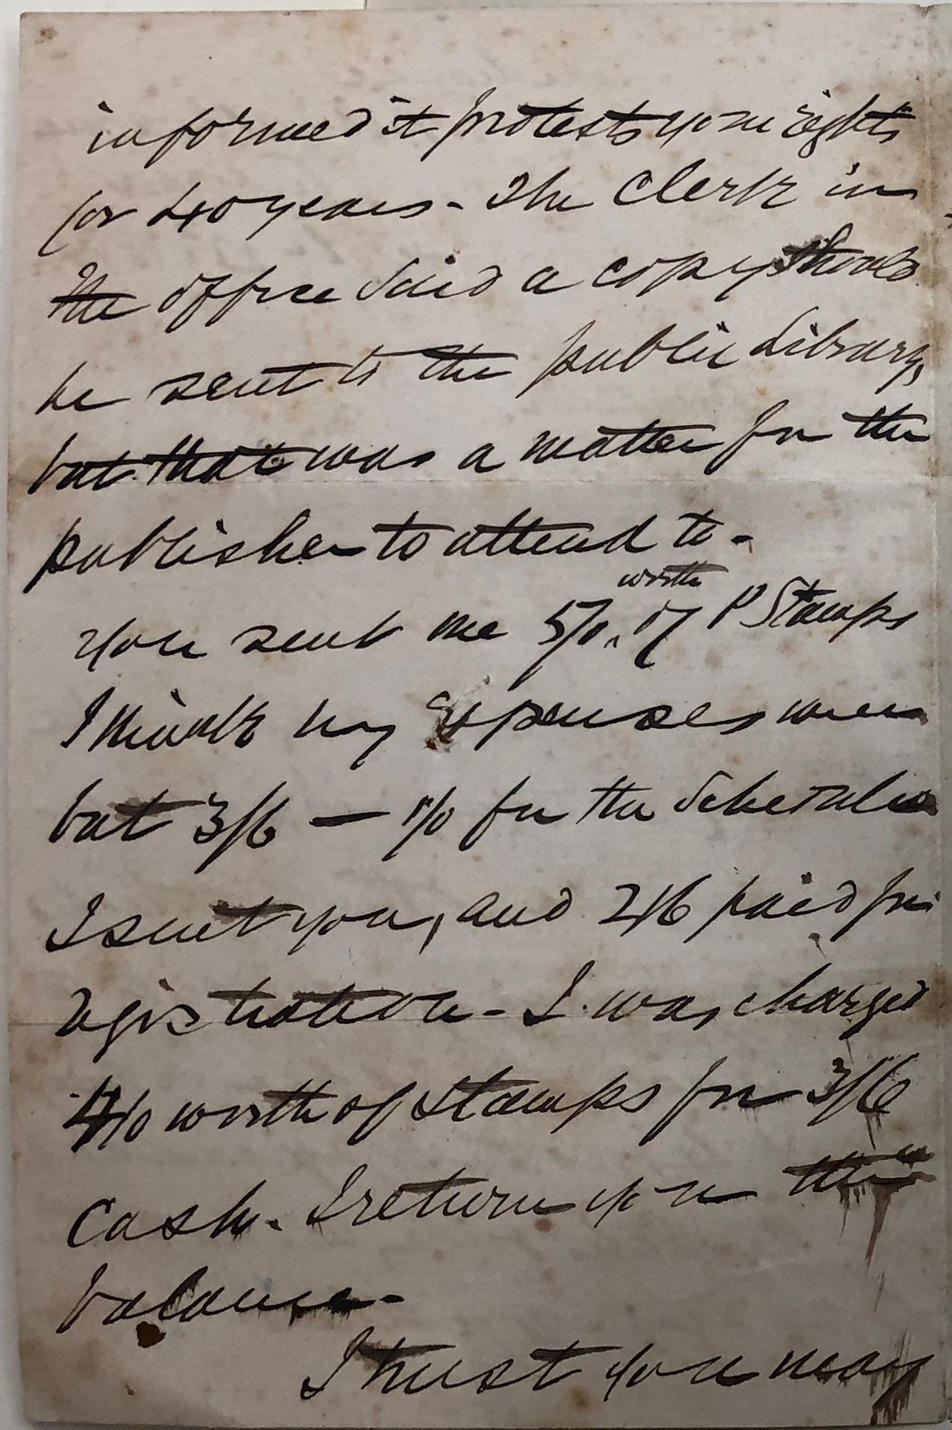 informed it protects your rights
for 40 years - The Clerk in
the office said a copy should
be sent to the public Library,
but that was a matter for the
publisher to attend to -
You sent me 5/0 worth of P Stamps
I think my expenses were
but 3/6 — 1/0 for the Schedules
I sent you, and 2/6 paid for
registration - I was charged
4/0 worth of stamps for 3/6
Cash - I return you the
balance -
I trust you may